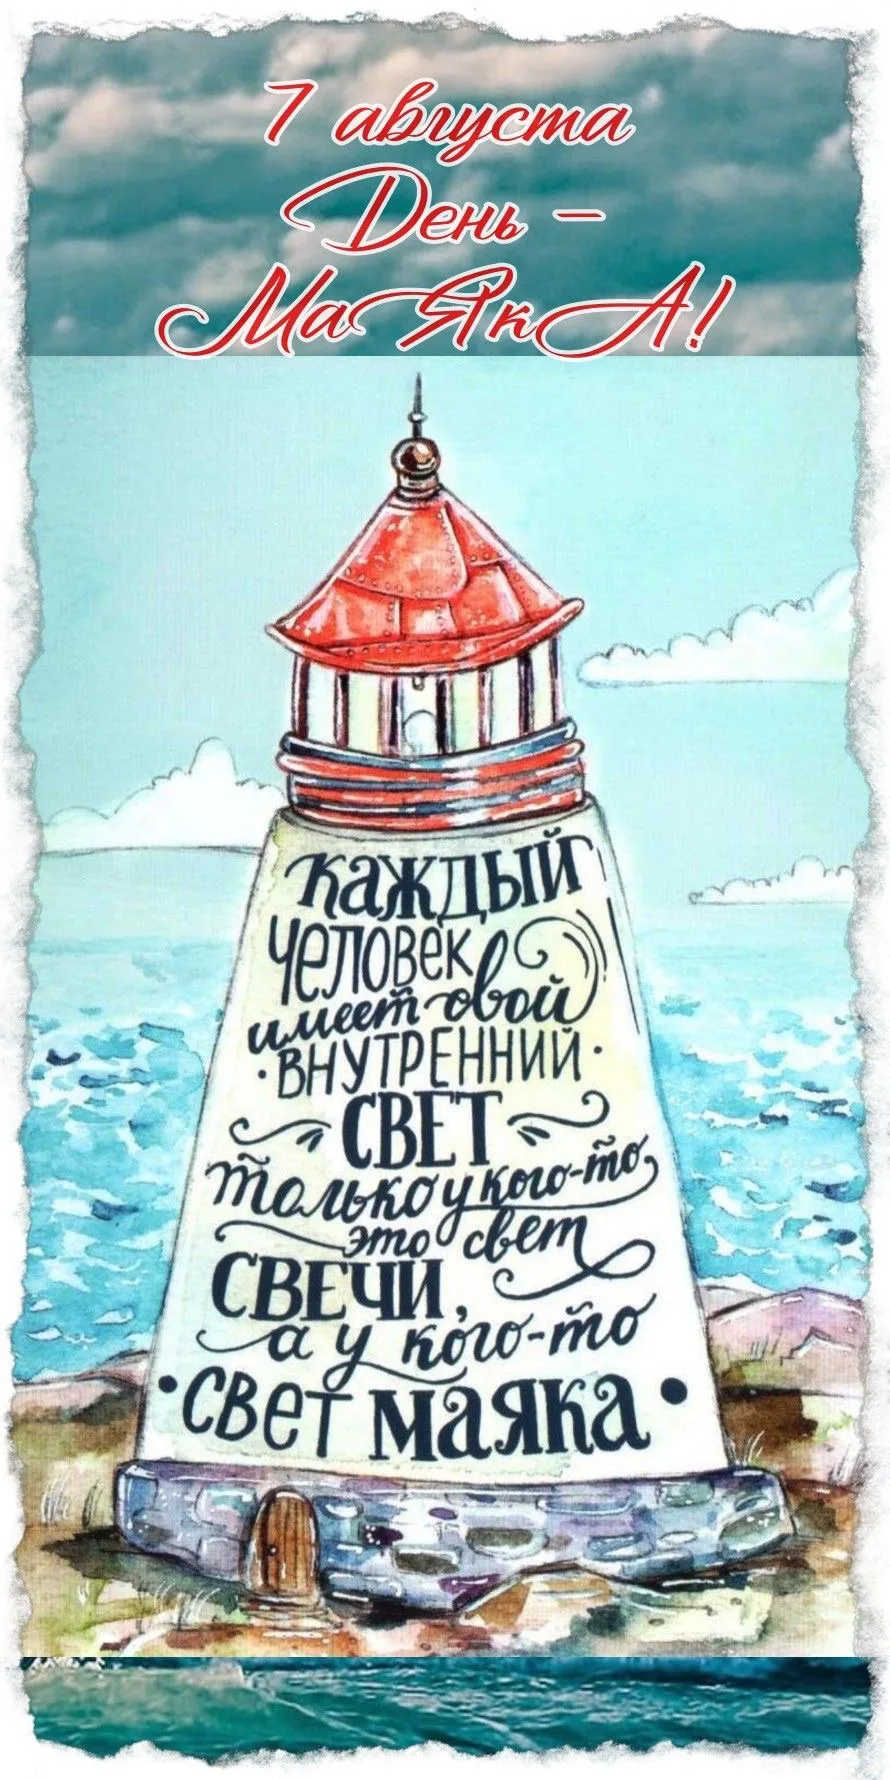 7 августа
День –
МаЯкА!
Каждый
человек
имеет свой
• внутренний •
свет
только у кого-то,
это свет
свечи,
а у кого-то
• свет маяка •